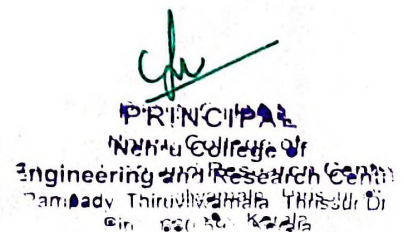 PRINCIPAL
Nehru College of
Engineering and Research Centre
Pampady Thiruvilwamala Thrissur Dt
Kerala